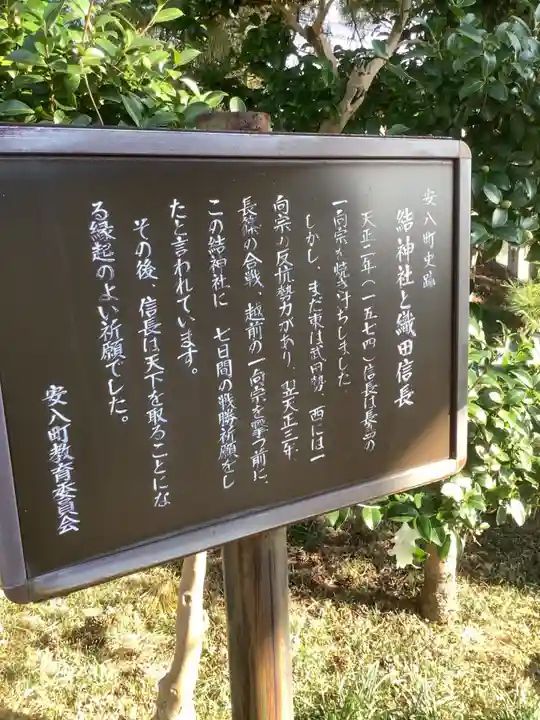 安八町史跡
結神社と織田信長
天正二年(一五七四)信長は長島の
一向宗を焼き討ちしました。
しかし、まだ東は武田勢、西には一
向宗の反抗勢力があり、翌天正三年
長篠の合戦、越前の一向宗を撃つ前に、
この結神社に 七日間の戦勝祈願をし
たと言われています。
その後、信長は天下を取ることにな
る縁起のよい祈願でした。
安八町教育委員会